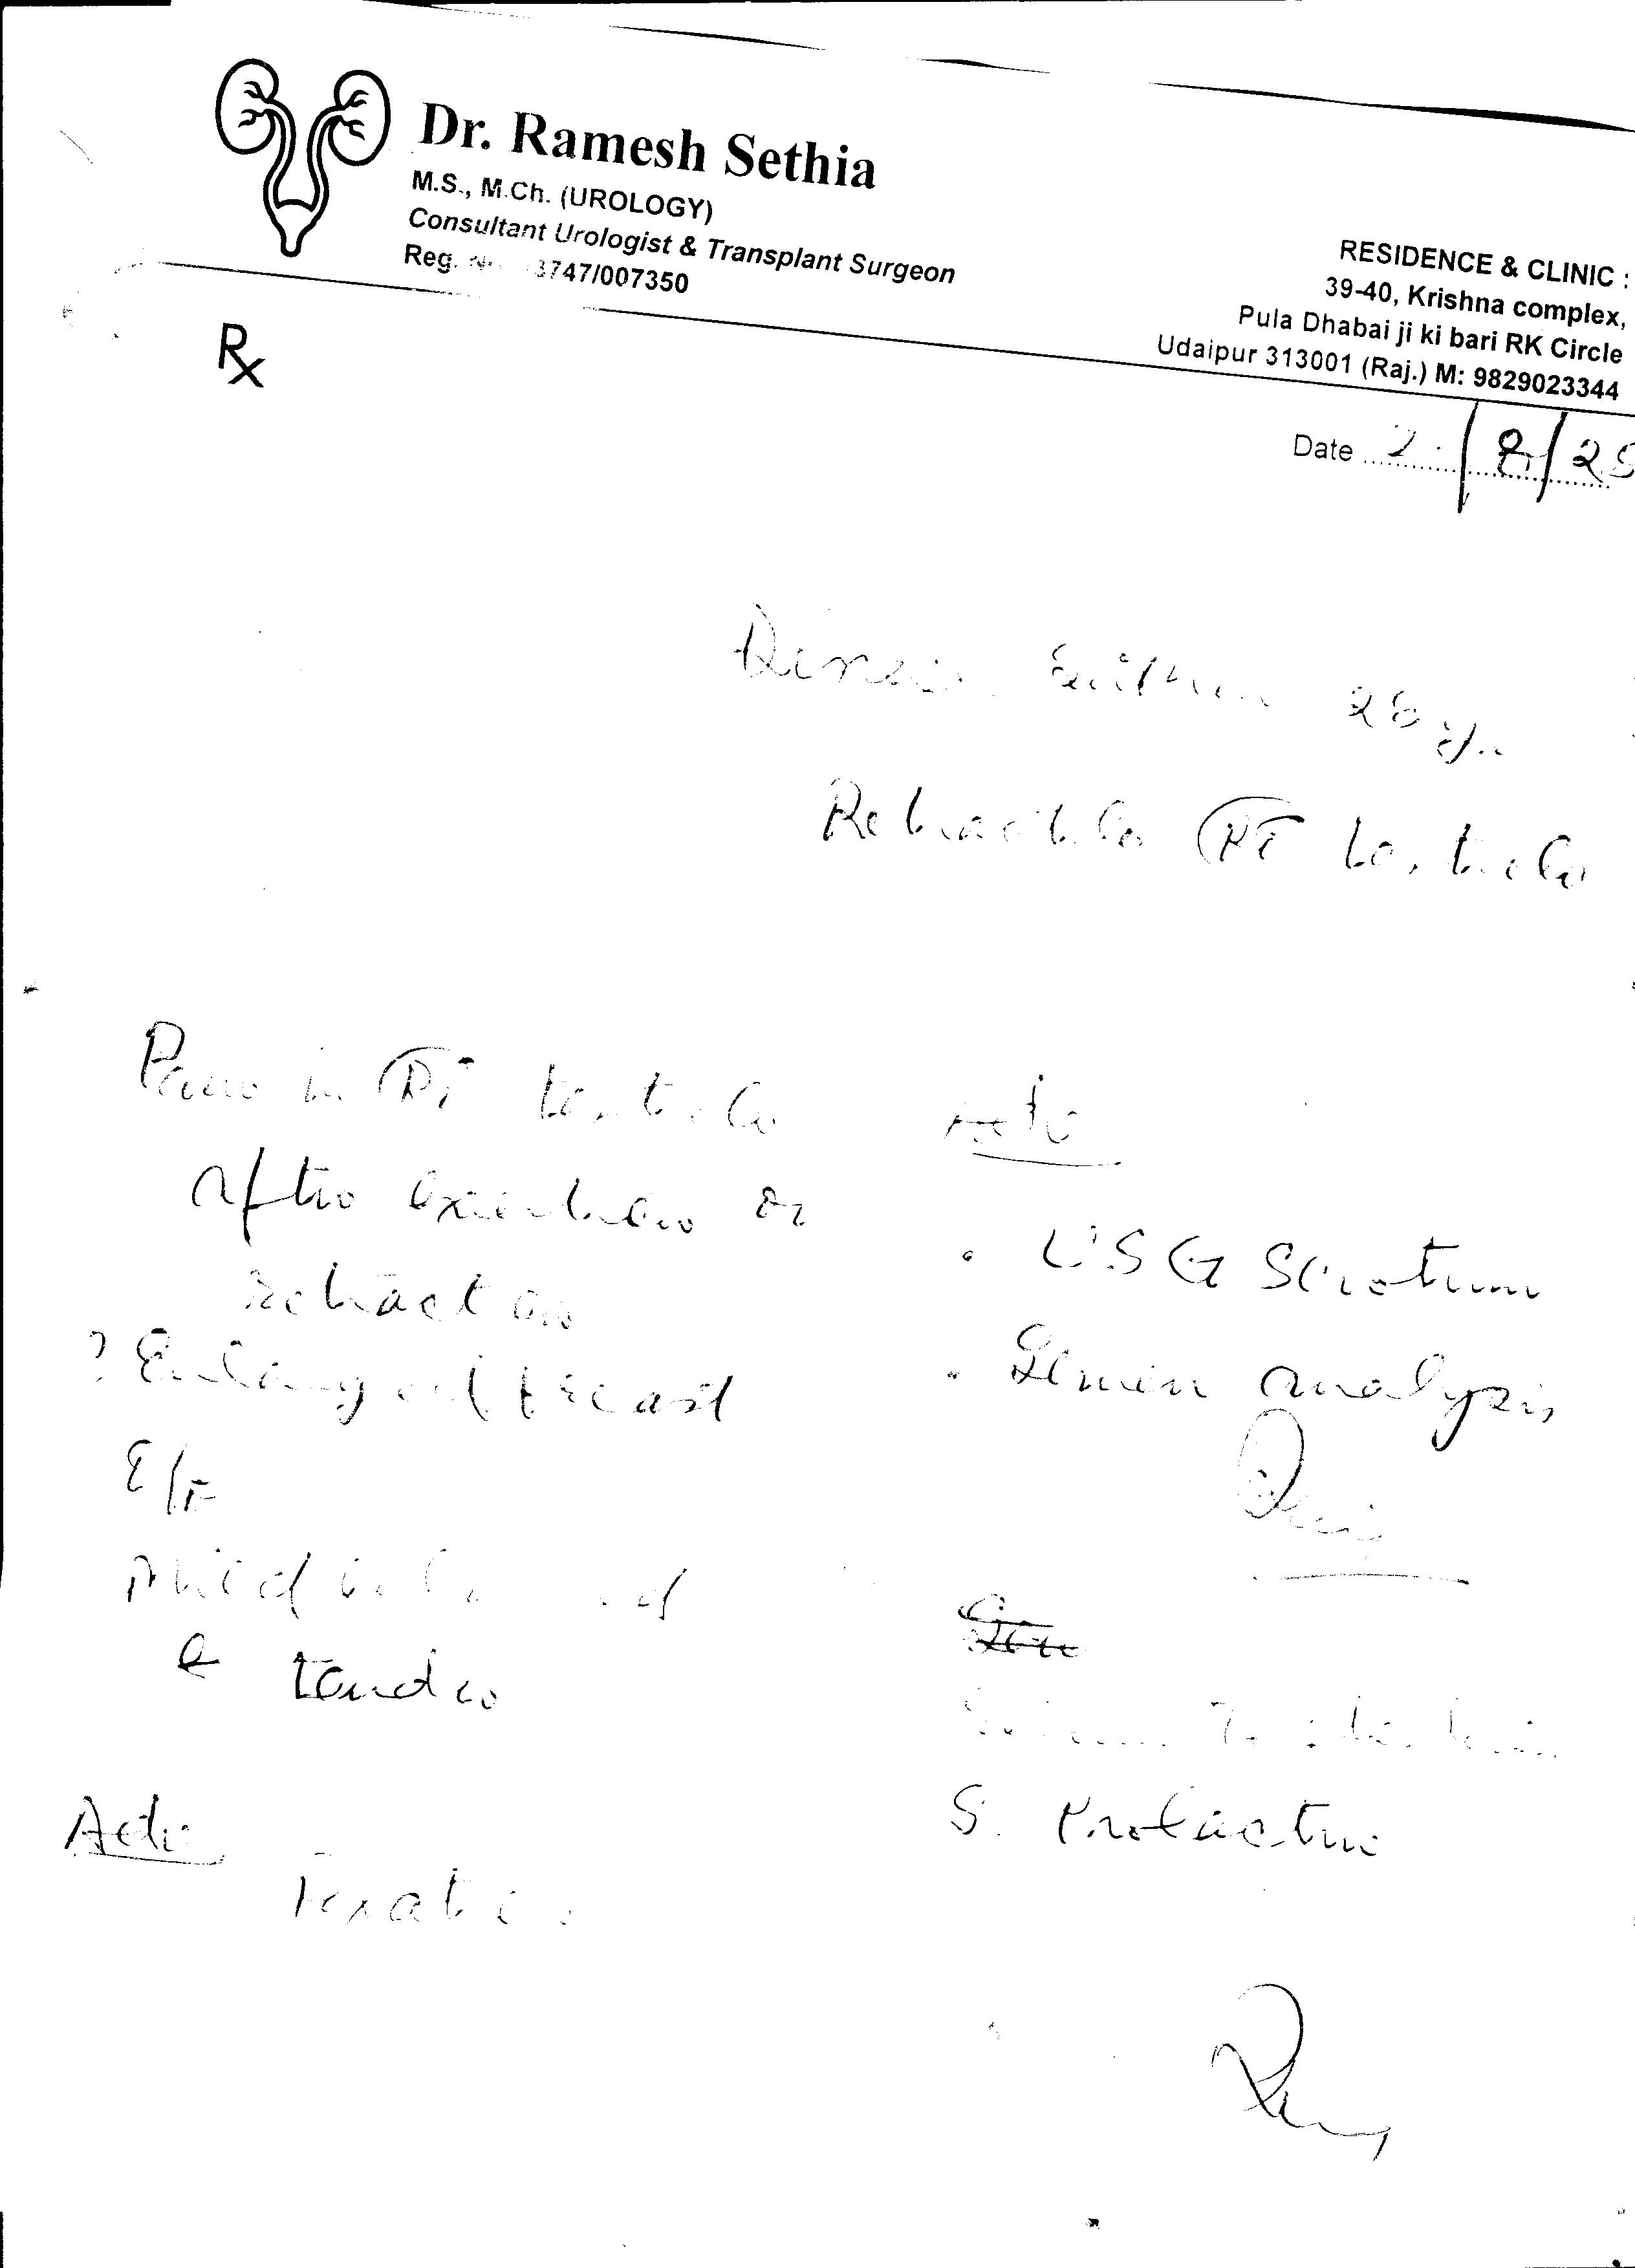 Dr. Ramesh Sethia
M.S., M.Ch. (UROLOGY)
Consultant Urologist & Transplant Surgeon
Reg. No. 3747/007350
RESIDENCE & CLINIC :
39-40, Krishna complex,
Pula Dhabai ji ki bari RK Circle
Udaipur 313001 (Raj.) M: 9829023344
Rx
Date 2/8/25
28 y.
Retractile RT testicle
Pain in RT testicle
after or
retraction
? Enlarged breast
E/F
Mild
& tender
Adv
Fixation
Adv
• USG Scrotum
• Semen analysis
Serum Testosterone
S. Prolactin